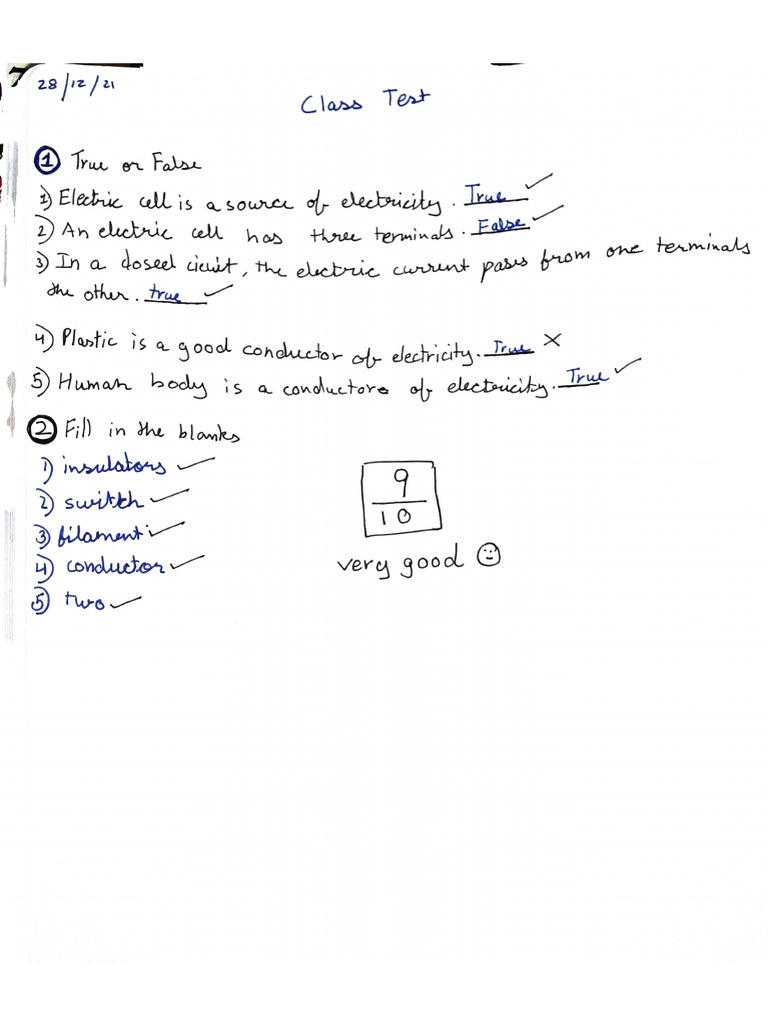 28/12/21
Class Test
1 True or False
1) Electric cell is a source of electricity. True ✓
2) An electric cell has three terminals. False ✓
3) In a closed cicuit, the electric current pases from one terminals
the other. true ✓
4) Plastic is a good conductor of electricity. True ×
5) Human body is a conductore of electricity. True ✓
2 Fill in the blanks
1) insulators ✓
2) switch ✓
3) filament ✓
4) conductor ✓
5) two ✓
9
10
very good ☺